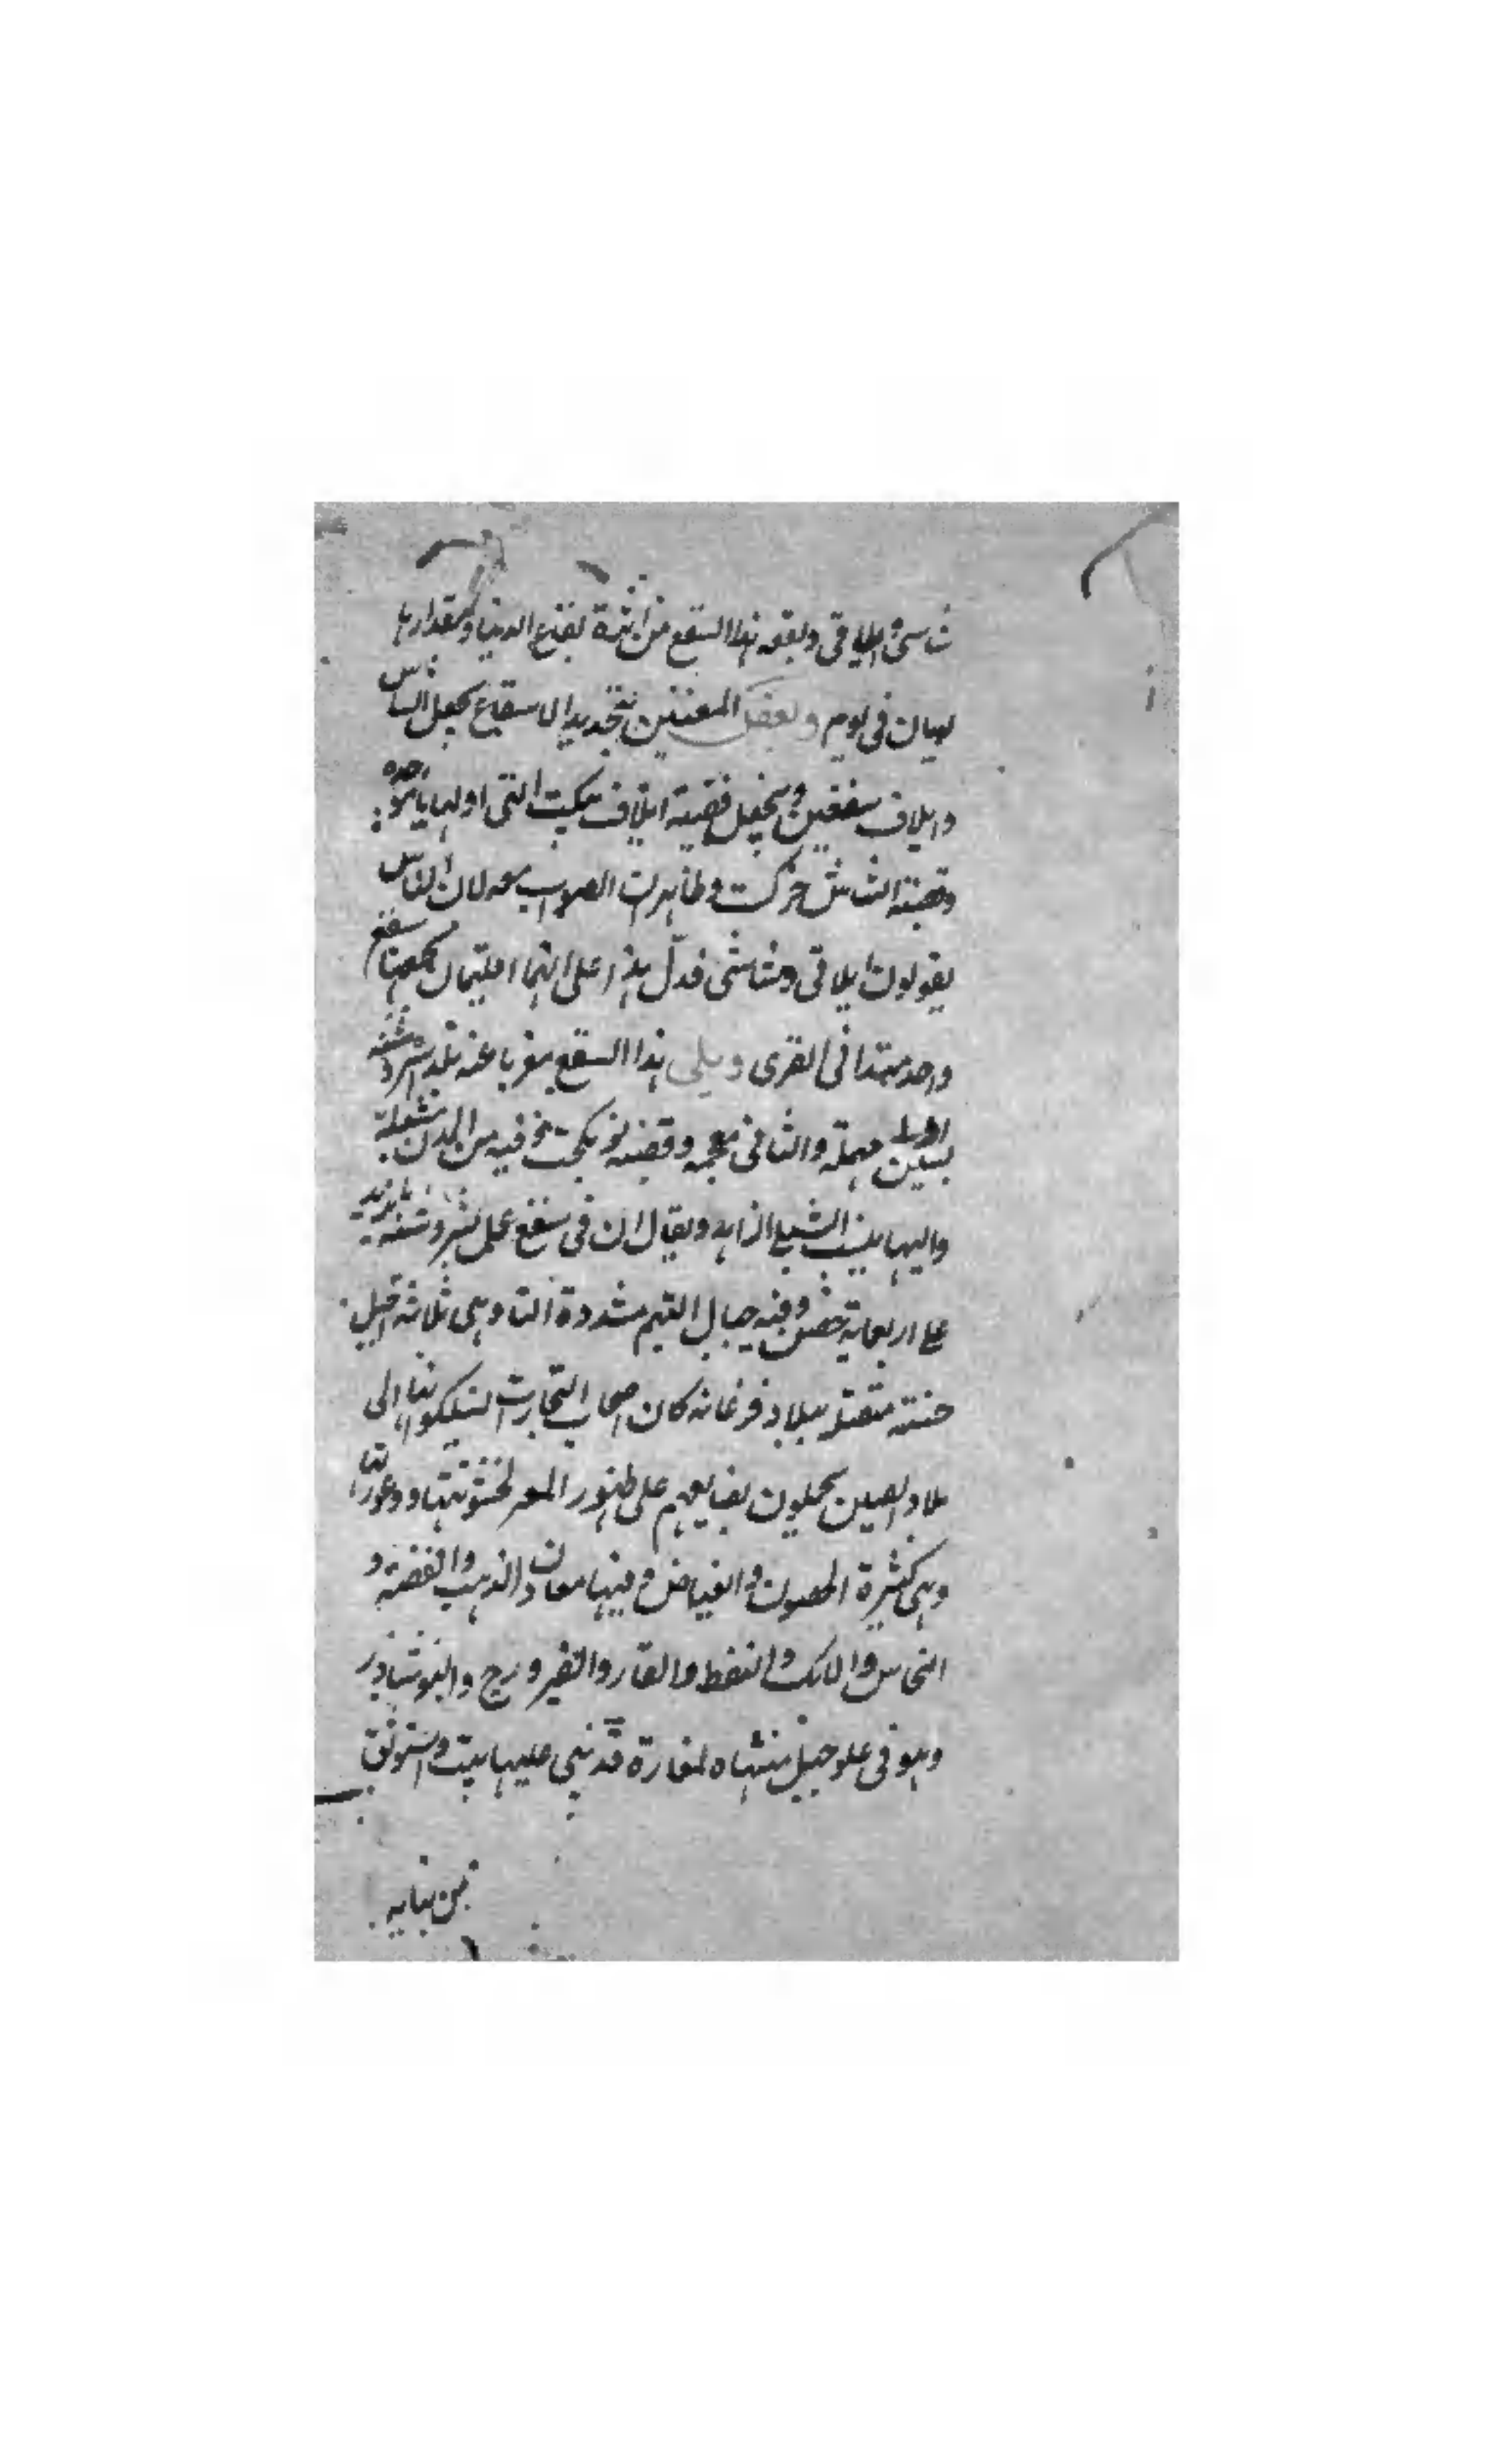 شاسى وايلاقى وبقعه هذا السقع من انزه بقع الدنيا ومقدارها
يومان فى يوم وبعض المعتنين بتحديد الاسقاع يجعل الشاس
وايلاق سقعين ويجعل قصبة ايلاق نكيت التى اولها ياموحده
وقصبة الشاش خركت وظاهر ان الصواب معه لان الناس
يقولون ايلاقى وشاشى فدل هذا على انهما اقليمان يجمعهما سقع
واحد ممتدا فى القرى ويلى هذا السقع مغربا عنه بلد اسروشنه
بسين الاولى مهملة والثانى معجمه وقصبته نوبكجث وفيه من المدن
واليها ينسب الشبلى الزاهد ويقال ان فى سقع عمل اشروسنه ما يزيد
على اربعماية حصن وفيه جبال البتم مشددة التا وهى ثلاثة اجبل
حسنه متصله ببلاد فرغانه كان اصحاب التجارت السلكوا بها الى
بلاد الصين يحملون بضايعهم على ظهور المعز لخشونتها ووعورتها
وهى كثيرة الحصون والغياض وفيها معادن الذهب والفضة و
النحاس والانك والنفط والقار والفيروزج والنوشادر
وهو فى علو جبل منتهاه لمغارة قد بنى عليها بيت واستوثق
من بنايه